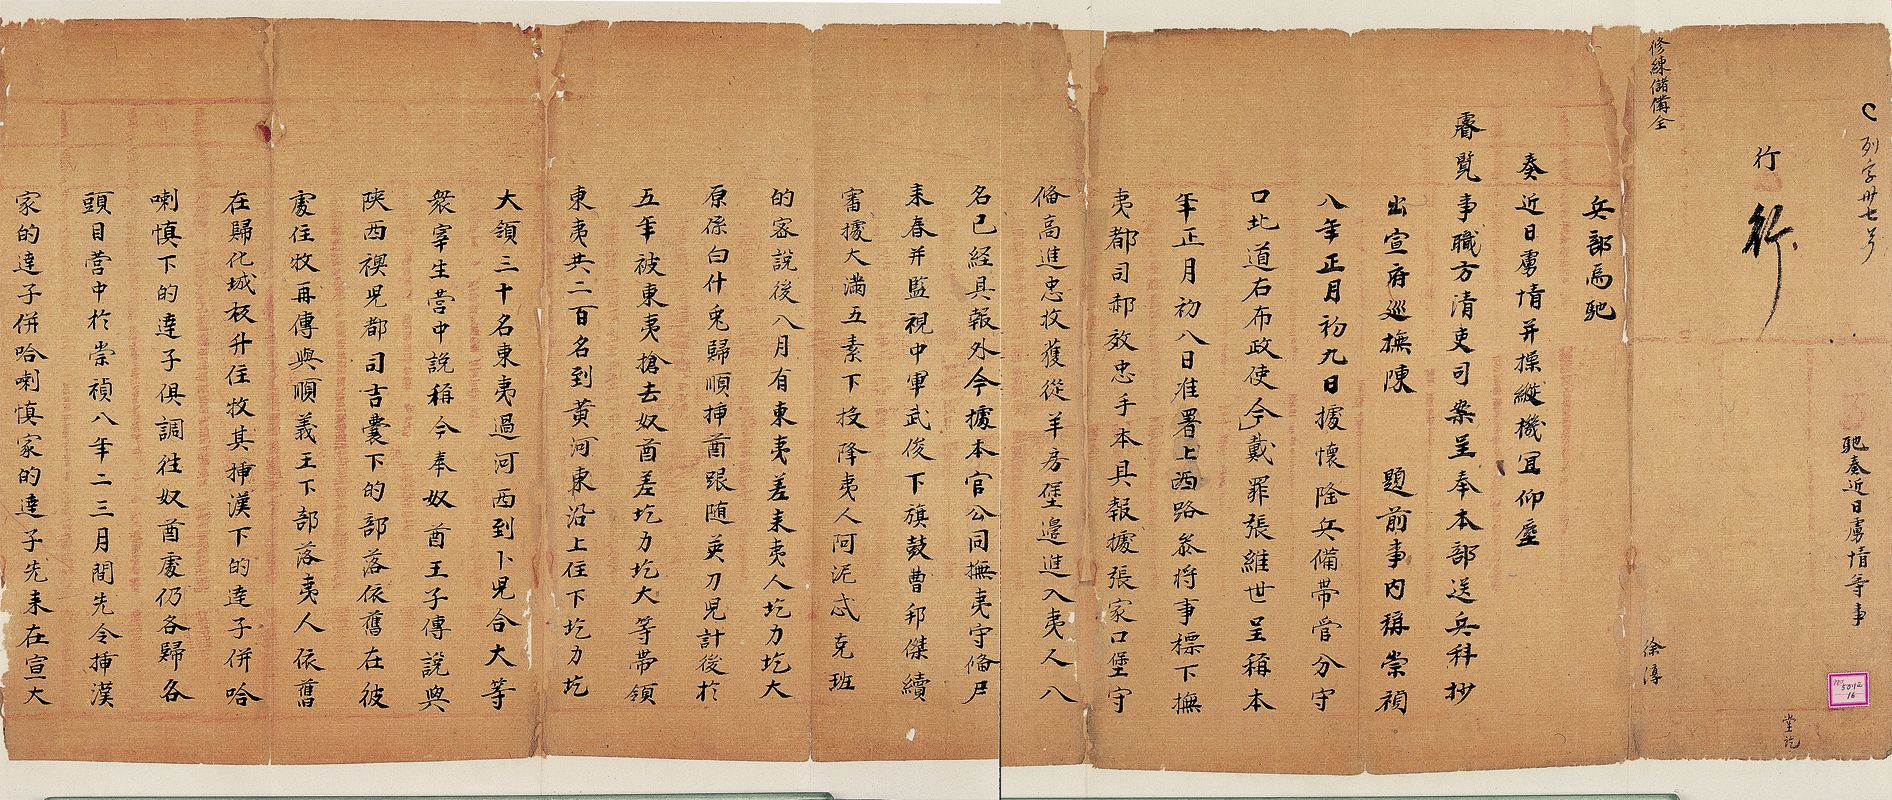 列字卅七号
馳奏近日虜情等事
堂訖
行
行
修練儲備全
徐淳
兵部為馳
奏近日虜情并操縱機宜仰塵
睿覧事職方清吏司案呈奉本部送兵科抄
出宣府巡撫陳 題前事内稱崇禎
八年正月初九日據懷隆兵備帶管分守
口北道右布政使今戴罪張維世呈稱本
年正月初八日准署上西路叅将事標下撫
夷都司郝效忠手本具報據張家口堡守
俻高進忠收獲從羊房堡邊進入夷人八
名已經具報外今據本官公同撫夷守俻尸
耒春并監視中軍武俊下旗鼓曹邦傑續
審據大滿五素下投降夷人阿泥忒克班
的客說後八月有東夷差耒夷人圪力圪大
原係白什兎歸順揷酋跟随英刀児計後於
五年被東夷搶去奴酋差圪力圪大等帶領
東夷共二百名到黄河東沿上住下圪力圪
大領三十名東夷過河西到卜児合大等
衆宰生營中說稱今奉奴酋王子傳說與
陝西襖児都司吉囊下的部落依舊在彼
處住牧再傳與順義王下部落夷人依舊
在歸化城板升住牧其揷漢下的逹子併哈
喇慎下的逹子俱調往奴酋處仍各歸各
頭目營中於崇禎八年二三月間先令揷漢
家的逹子併哈喇慎家的逹子先耒在宣大